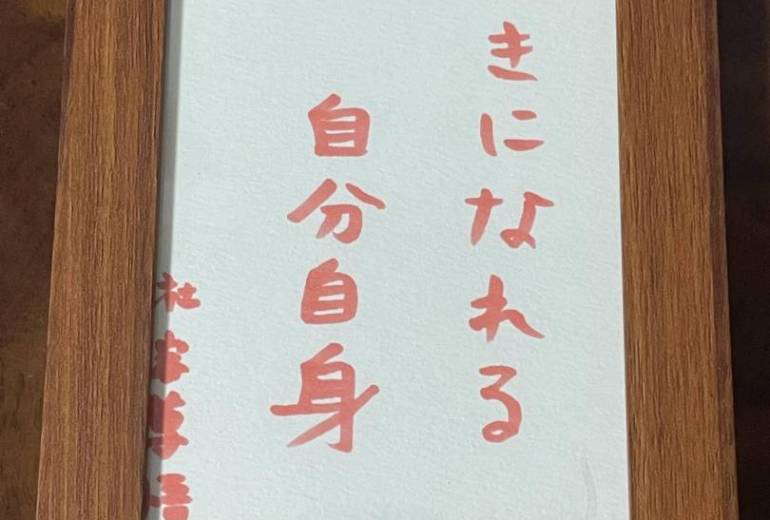 きになれる
自分自身
杜